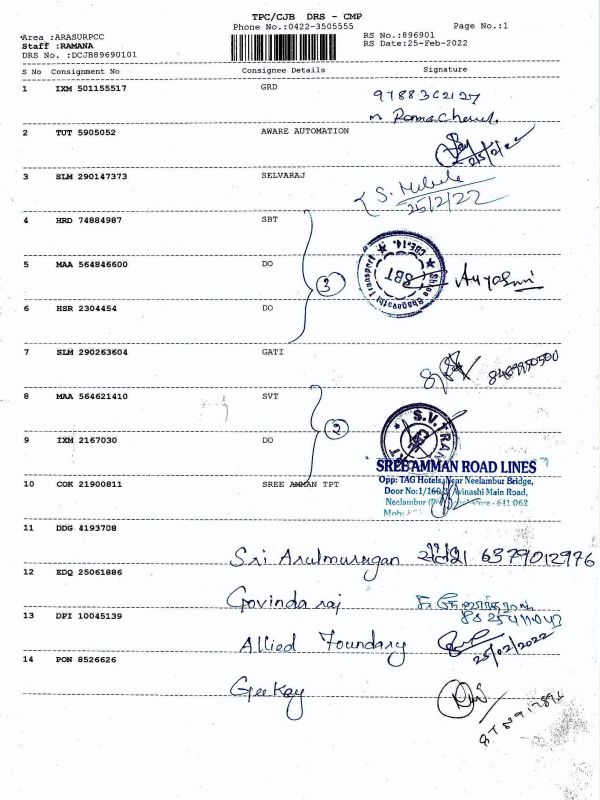 TPC/CJB DRS - CMP
Phone No.:0422-3505555
Page No.:1
Area :ARASURPCC
RS No.:896901
Staff :RAMANA
RS Date:25-Feb-2022
DRS No. :DCJB89690101
S No Consignment No Consignee Details Signature
1 IXM 501155517 GRD
2 TUT 5905052 AWARE AUTOMATION
3 SLM 290147373 SELVARAJ
25/2/22
4 HRD 74884987 SBT
5 MAA 564846600 DO
3
Shree Bhagavathi Transport
SBT
CBE-14.
6 HSR 2304454 DO
7 SLM 290263604 GATI
8 MAA 564621410 SVT
2
S.V.TRAN
9 IXM 2167030 DO
SREE AMMAN ROAD LINES
Opp: TAG Hotels, Near Neelambur Bridge,
10 COK 21900811 SREE AMMAN TPT
Door No:1/160 Avinashi Main Road,
Neelambur
11 DDG 4193708
Sri Arulmurugan 6379012976
12 EDQ 25061886
Govinda raj
13 DPI 10045139
Allied Foundary
25/02/2022
14 PON 8526626
Gee Kay